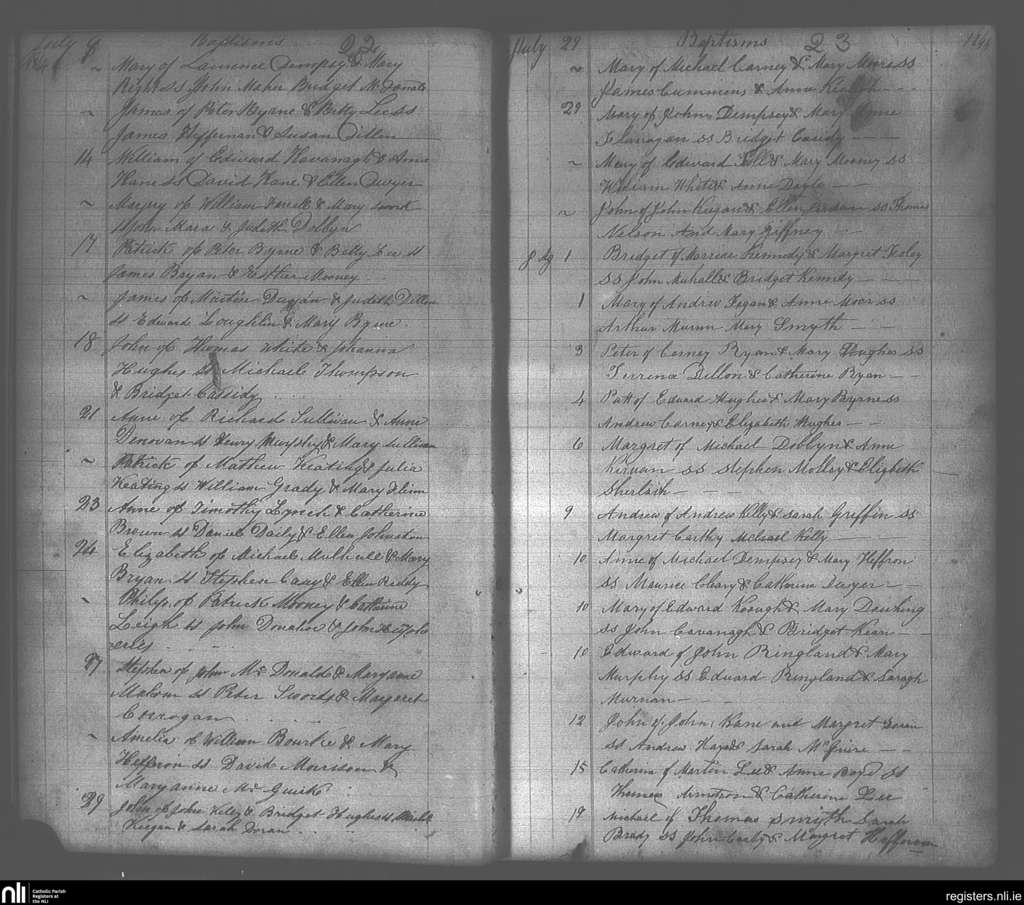 July 9 Baptisms 22
~ Mary of Laurence Dempsey & Mary
Right ss John Maher Bridget Mc
~ James of Peter Byrne & Bitty Lee ss
James Heffernan & Susan Dillon
14 William of Edward Kavanagh & Anne
Kane ss David Kane & Ellen Dwyer
~ Margery of William & Mary
ss John Mara & Judith Dobbyn
17 Patrick of Peter Byrne & Bitty Lee ss
James Bryan & Esther Mooney
~ James of Martin Duggan & Judith Dillon
ss Edward Loughlin & Mary Byrne
18 John of Thomas White & Johanna
Hughes ss Michael Thompson
& Bridget Cassidy
21 Anne of Richard Sullivan & Anne
Donovan ss Henry Murphy & Mary Sullivan
~ Patrick of Mathew Keating & Julia
Keating ss William Grady & Mary
23 Anne of Timothy Lynch & Catherine
Brown ss Daniel Daily & Ellen Johnston
24 Elizabeth of Michael Mulhall & Mary
Bryan ss Stephen Casey & Ellen Reddy
~ Philip of Patrick Mooney & Catherine
Leigh ss John Donahoe &

27 Stephen of John Mc Donald & Maryanne
Malone ss Peter Swords & Margaret
Corrogan
~ Amelia of William Bourke & Mary
Heffron ss David Morrison &
Maryanne Mc Guirk
29 John of John Kelly & Bridget Hughes ss
Keegan & Sarah Doran
July 29 Baptisms 23
~ Mary of Michael Carney & Mary Moore ss
James Cummens & Anne Keogh
29 Mary of John Dempsey & Mary Anne
Flanagan ss Bridget Casidy
~ Mary of Edward & Mary Mooney ss
William White & Anne Doyle
~ John of John Keegan & Ellen ss Thomas
Nelson And Mary Giffney
1 Bridget of Kennedy & Margret Foley
ss John Muhall & Bridget Kennedy
1 Mary of Andrew Fegan & Anne Moor ss
Arthur Mary Smyth
3 Peter of Carney Ryan & Mary Hughes ss
Terrence Dillon & Catherine Ryan
4 Patt of Edward Hughes & Mary Byrne ss
Andrew Carney & Elizabeth Hughes
6 Margret of Michael Dobbyn & Anne
Kirwan ss Stephen Molloy & Elizabeth
Sherlock
9 Andrew of Andrew Kelly & Sarah Greffin ss
Margret Carthy Michael Kelly
10 Anne of Michael Dempsey & Mary Heffron
ss Maurice Cleary & Catherine Dwyer
10 Mary of Edward Keough & Mary Dowling
ss John Cavanagh & Bridget Kean
10 Edward of John Ringland & Mary
Murphy ss Edward Ringland & Saragh

12 John of John Kane and Margret
ss Andrew Hayes & Sarah Mc Guire
15 Catherine of Martin Lee & Anne Boyd ss
Thomas Armstron & Catherine Lee
19 Michael of Thomas Smyth Sarah
Brady ss John & Margret Heffernan
nli
Catholic Parish
Registers at
the NLI
registers.nli.ie